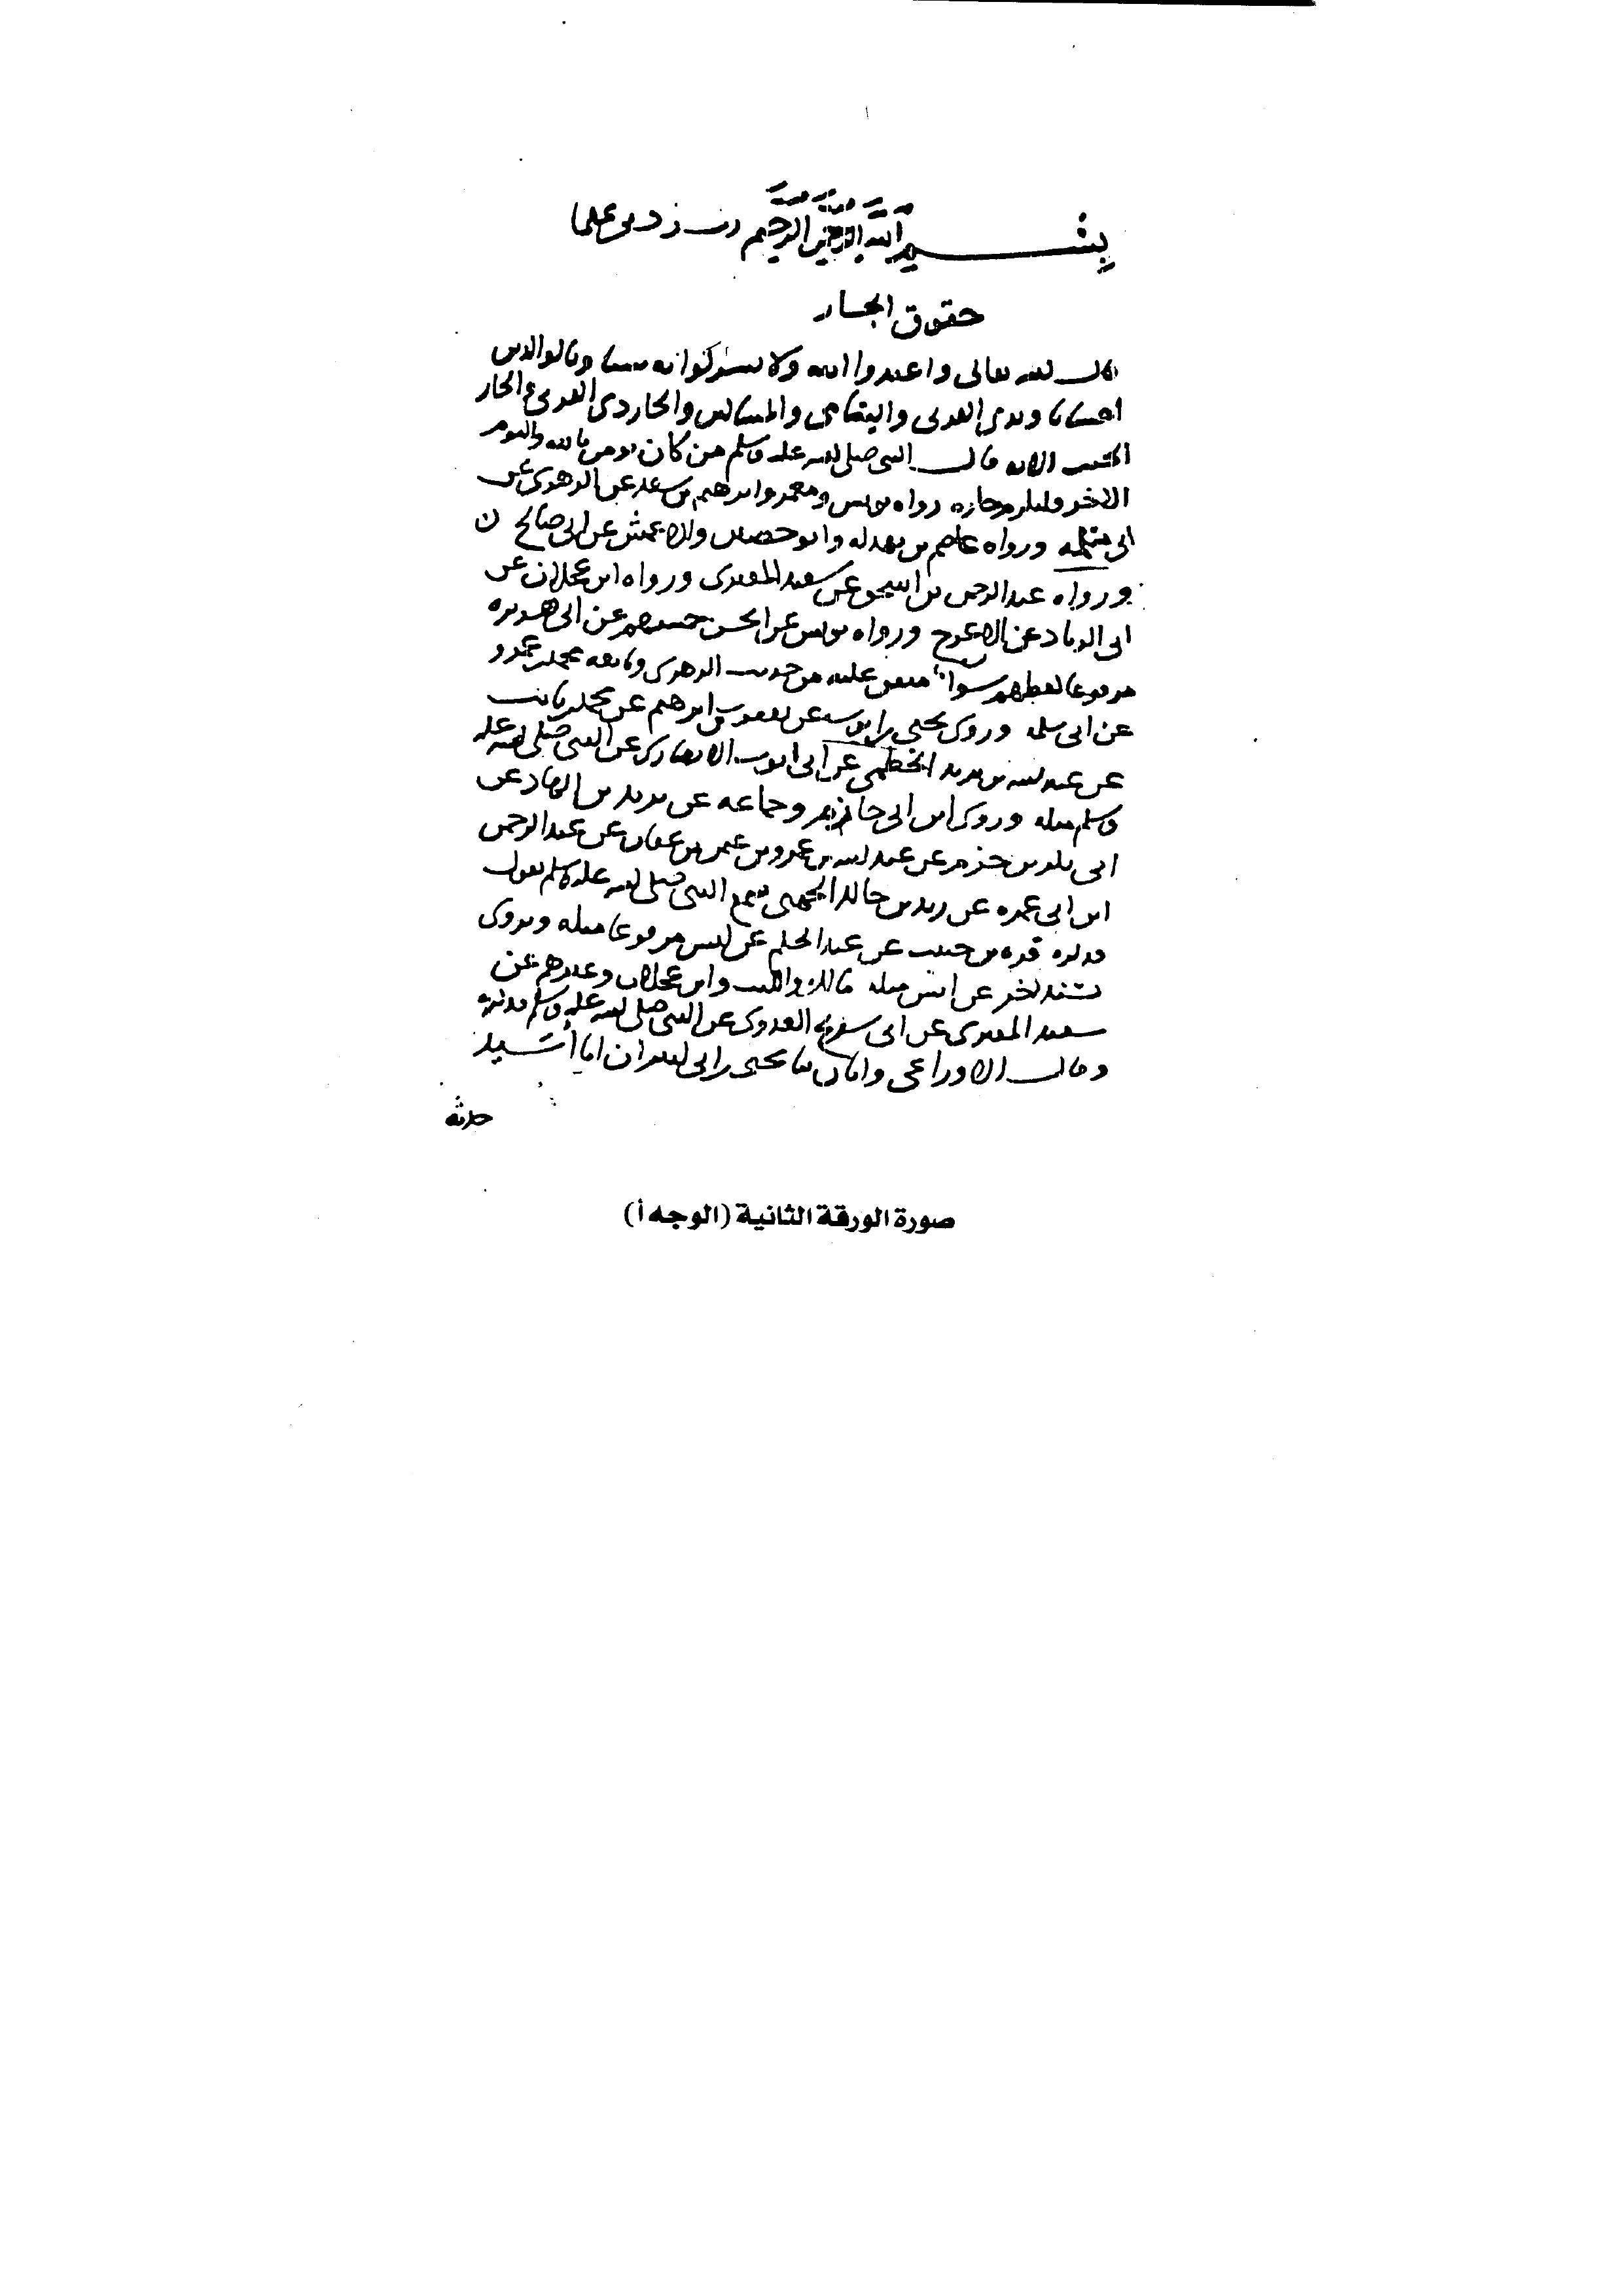 بسم الله الرحمن الرحيم رب زدني علما
حقوق الجار
قال الله تعالى واعبدوا الله ولا تشركوا به شيئا وبالوالدين
احسانا وبذي القربى واليتامى والمساكين والجار ذي القربى والجار
الجنب الاية قال النبي صلى الله عليه وسلم من كان يومن بالله واليوم
الاخر فليكرم جاره رواه يونس ومعمر وابرهيم بن سعد عن الزهري عن
ابي سلمة ورواه عاصم بن بهدلة وابو حصين والاعمش عن ابي صالح ن
ورواه عبد الرحمن بن اسحق عن سعيد المقبري ورواه ابن عجلان عن
ابي الزناد عن الاعرج ورواه يونس عن الحسن جميعهم عن ابي هريرة
مرفوعا لفظهم سواء متفق عليه من حديث الزهري وتابعه محمد بن عمرو
عن ابي سلمة وروى يحيى بن ايوب عن يعقوب بن ابرهيم عن محمد بن ثابت
عن عبد الله بن يزيد الخطمي عن ابي ايوب الانصاري عن النبي صلى الله عليه
وسلم مثله وروى ابن ابي حازم وجماعة عن يزيد بن الهاد عن
ابي بكر بن حزم عن عبد الله بن عمرو بن عثمان عن عبد الرحمن
ابن ابي عمرة عن زيد بن خالد الجهني سمع النبي صلى الله عليه وسلم يقول
فذكره قرة بن حبيب عن عبد الحكم عن انس مرفوعا مثله ويروى
بسند اخر عن انس مثله مالك والليث وابن عجلان وغيرهم عن
سعيد المقبري عن ابي شريح العدوي عن النبي صلى الله عليه وسلم فذكره
وقال الاوزاعي وابان ثنا يحيى بن ابي كثير ان ابا أسيد
حدثه
صورة الورقة الثانية (الوجه أ)